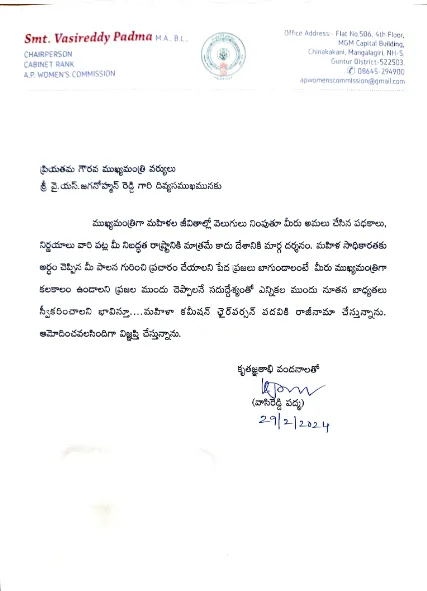 Smt. Vasireddy Padma M.A., B.L.,
CHAIRPERSON
CABINET RANK
A.P. WOMEN'S COMMISSION
Office Address - Flat No.506, 4th Floor,
MGM Capital Building,
Chinakakani, Mangalagiri, NH-5,
Guntur District-522503.
✆ 08645-294900
apwomenscommission@gmail.com
ప్రియతమ గౌరవ ముఖ్యమంత్రి వర్యులు
శ్రీ వై.యస్.జగనోహ్మన్ రెడ్డి గారి దివ్యసముఖమునకు
ముఖ్యమంత్రిగా మహిళల జీవితాల్లో వెలుగులు నింపుతూ మీరు అమలు చేసిన పథకాలు,
నిర్ణయాలు వారి పట్ల మీ నిబద్ధత రాష్ట్రానికి మాత్రమే కాదు దేశానికి మార్గ దర్శనం. మహిళ సాధికారతకు
అర్థం చెప్పిన మీ పాలన గురించి ప్రచారం చేయాలని పేద ప్రజలు బాగుండాలంటే మీరు ముఖ్యమంత్రిగా
కలకాలం ఉండాలని ప్రజల ముందు చెప్పాలనే సదుద్దేశ్యంతో ఎన్నికల ముందు నూతన బాధ్యతలు
స్వీకరించాలని భావిస్తూ....మహిళా కమీషన్ ఛైర్‌పర్సన్ పదవికి రాజీనామా చేస్తున్నాను.
ఆమోదించవలసిందిగా విజ్ఞప్తి చేస్తున్నాను.
కృతజ్ఞతాభి వందనాలతో
(వాసిరెడ్డి పద్మ)
29/2/2024